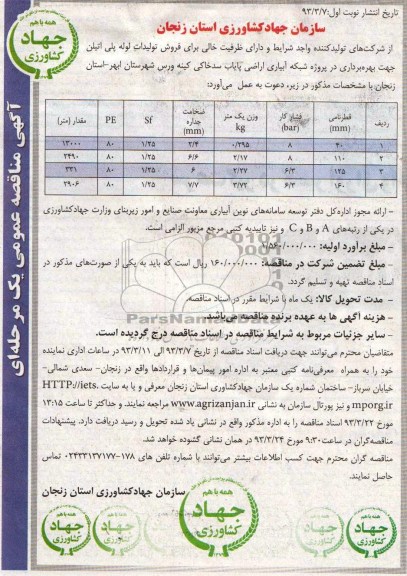 تاریخ انتشار نوبت اول: ۹۳/۳/۷
سازمان جهادکشاورزی استان زنجان
همه با هم
جهاد
کشاورزی
آگهی مناقصه عمومی یک مرحله‌ای
از شرکت‌های تولیدکننده واجد شرایط و دارای ظرفیت خالی برای فروش تولیدات لوله پلی اتیلن
جهت بهره‌برداری در پروژه شبکه آبیاری اراضی پایاب سدخاکی کینه ورس شهرستان ابهر-استان
زنجان با مشخصات مذکور در زیر، دعوت به عمل می‌آورد:
ردیف قطرنامی (mm) فشار کار (bar) وزن یک متر kg ضخامت جداره (mm) Sf PE مقدار (متر)
۱ ۴۰ ۸ ۰/۲۹۵ ۲/۴ ۱/۲۵ ۸۰ ۱۳۰۰۰
۲ ۱۱۰ ۸ ۲/۱۷ ۶/۶ ۱/۲۵ ۸۰ ۲۴۹۰
۳ ۱۲۵ ۶/۳ ۲/۲۷ ۶ ۱/۲۵ ۸۰ ۳۳۱
۴ ۱۶۰ ۶/۳ ۳/۷۲ ۷/۷ ۱/۲۵ ۸۰ ۲۹۰۶
- ارائه مجوز اداره‌کل دفتر توسعه سامانه‌های نوین آبیاری معاونت صنایع و امور زیربنای وزارت جهادکشاورزی
در یکی از رتبه‌های A و B و C و نیز تاییدیه کتبی مرجع مزبور الزامی است.
- مبلغ برآورد اولیه:
- مبلغ تضمین شرکت در مناقصه: ۱۶۰/۰۰۰/۰۰۰ ریال است که باید به یکی از صورت‌های مذکور در
اسناد مناقصه تهیه و تسلیم گردد.
- مدت تحویل کالا: یک ماه با شرایط مقرر در اسناد مناقصه.
- هزینه آگهی ها به عهده برنده مناقصه می‌باشد.
- سایر جزئیات مربوط به شرایط مناقصه در اسناد مناقصه درج گردیده است.
متقاضیان محترم می‌توانند جهت دریافت اسناد مناقصه از تاریخ ۹۳/۳/۷ الی ۹۳/۳/۱۱ در ساعات اداری نماینده
خود را به همراه معرفی‌نامه کتبی معتبر به اداره امور پیمان‌ها و قراردادها واقع در زنجان- سعدی شمالی-
خیابان سرباز- ساختمان شماره یک سازمان جهادکشاورزی استان زنجان معرفی و یا به سایت HTTP://iets.
mporg.ir و نیز پورتال سازمان به نشانی www.agrizanjan.ir مراجعه نمایند. و حداکثر تا ساعت ۱۳:۱۵
مورخ ۹۳/۳/۲۲ اسناد مناقصه را به اداره مذکور واقع در نشانی یاد شده تحویل و رسید دریافت دارد. پیشنهادات
مناقصه‌گران در ساعت ۹:۳۰ مورخ ۹۳/۳/۲۴ در همان نشانی گشوده خواهد شد.
مناقصه گران محترم جهت کسب اطلاعات بیشتر می‌توانند با شماره تلفن های ۱۷۸-۰۲۴۳۳۱۳۷۱۷۷ تماس
حاصل نمایند.
سازمان جهادکشاورزی استان زنجان
همه با هم
جهاد
کشاورزی
همه با هم
جهاد
کشاورزی
همه با هم
جهاد
کشاورزی
جهاد
کشاورزی
جهاد
کشاورزی